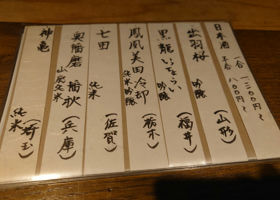 日本酒 一合 一二〇〇円〜
半合 八〇〇円〜
出羽桜 吟醸 (山形)
黒龍 いっちょらい 吟醸 (福井)
鳳凰美田 冷卸 純米吟醸 (栃木)
七田 純米 (佐賀)
奥播磨 播秋 山廃純米 (兵庫)
神亀 純米 (埼玉)